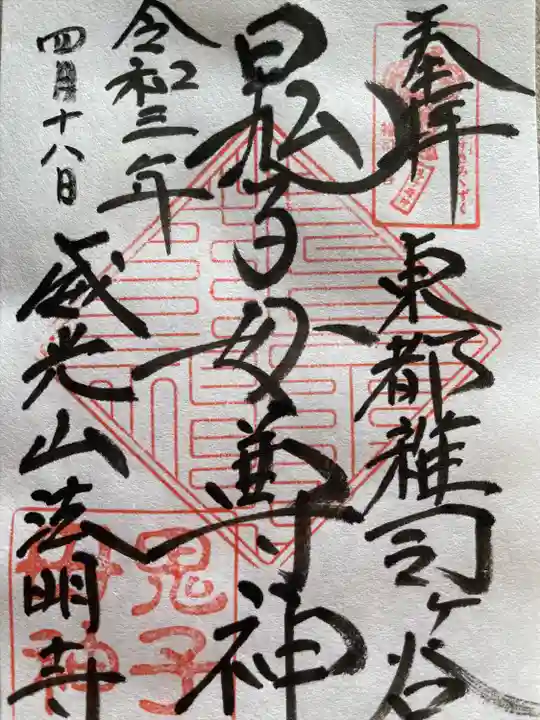 奉拝
東都雑司ヶ谷
鬼子母尊神
令和三年
四月十八日
威光山法明寺
鬼子
母神